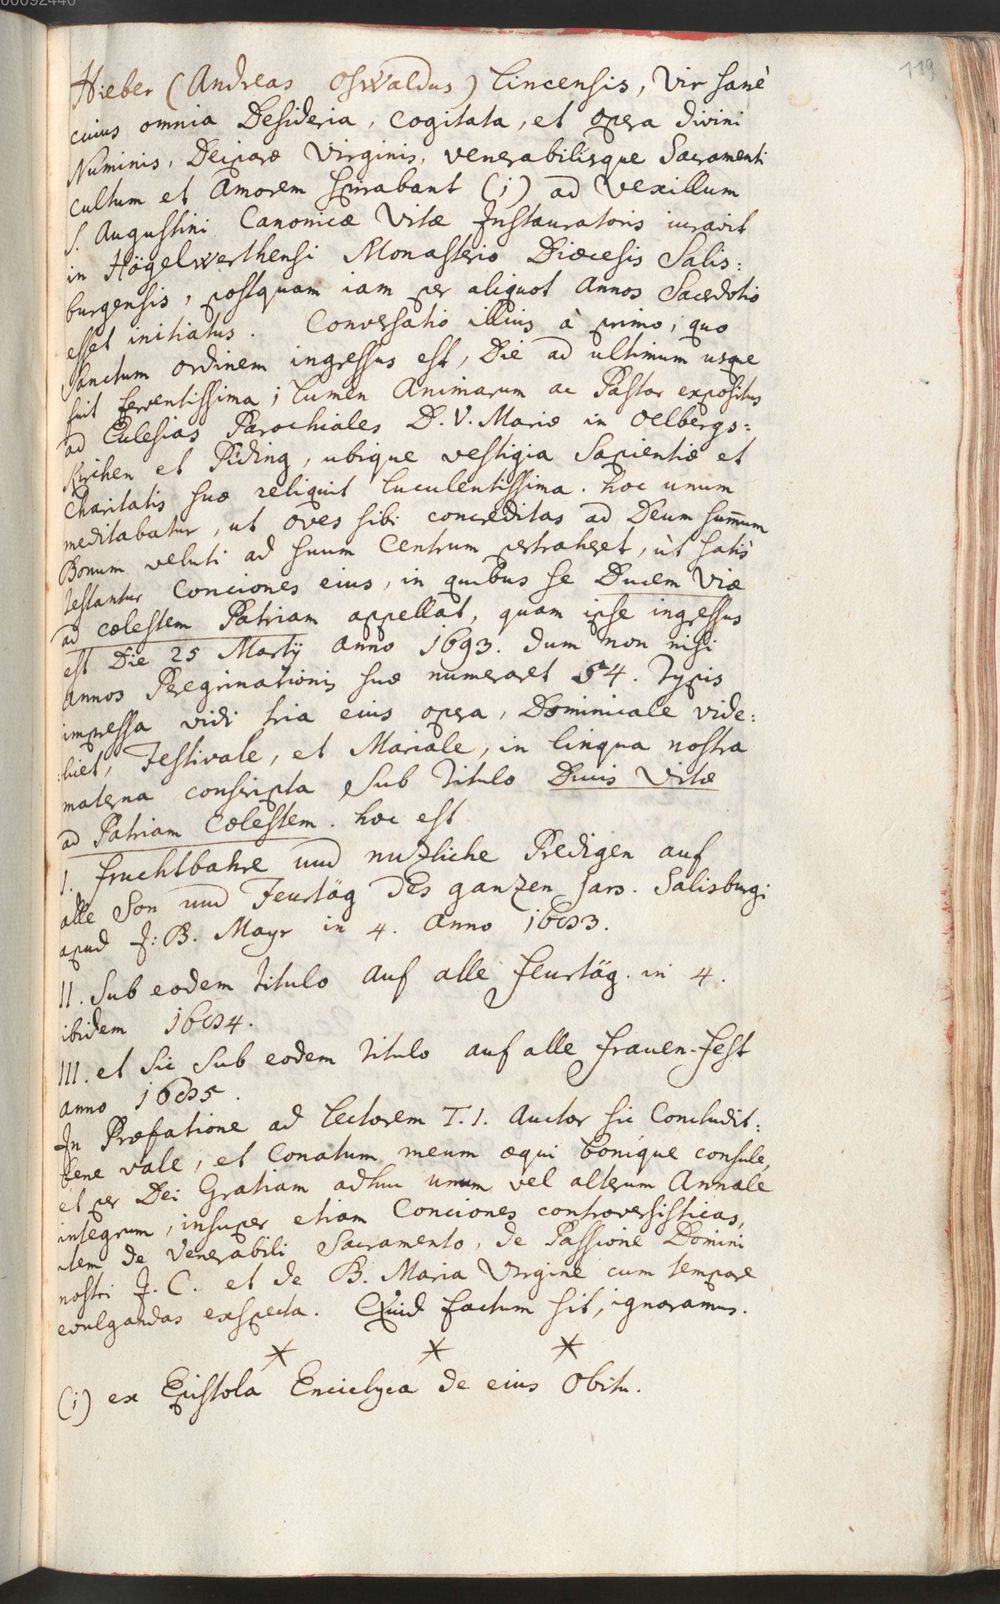 00092440
119
Hieber (Andreas Oswaldus) Lincensis, Vir sanè
cuius omnia Desideria, Cogitata, et opera divini
Numinis, Deiparæ Virginis, venerabilisque Sacramenti
cultum et Amorem spirabant (i) ad Vexillum
S. Augustini Canonicæ Vitæ Instauratoris iuravit
in Högelwerthensi Monasterio Diœcesis Salis:
burgensis, postquam iam per aliquot Annos Sacerdotio
esset initiatus. Conversatio illius à primo, quo
Sanctum ordinem ingressus est, Die ad ultimum usque
fuit ferventissima; Lumen Animarum ac Pastor expositus
ad Eclesias Parochiales B. V. Mariæ in Oelbergs:
Kirchen et Piding, ubique vestigia Sapientiæ et
Charitatis suæ reliquit luculentissima. hoc unum
meditabatur, ut oves sibi concreditas ad Deum sum̄um
Bonum veluti ad suum Centrum pertraheret, ùt satis
testantur Conciones eius, in quibus se Ducem Viæ
ad cœlestem Patriam appellat, quam ipse ingressus
est Die 25 Martij Anno 1693. dum non nisi
annos Peregrinationis suæ numeraret 54. Typis
impressa vidi tria eius opera, Dominicale vide:
:licet, Festivale, et Mariale, in lingua nostra
materna conscripta sub Titulo Ducis Vitæ
ad Patriam Cœlestem. hoc est
I. fruchtbahre und nuzliche Predigen auf
alle Son und Feurtäg des ganzen Jars. Salisburgi
apud J: B. Mayr in 4. Anno 1683.
II. Sub eodem titulo Auf alle feurtäg. in 4.
ibidem 1684.
III. et Sic Sub eodem titulo auf alle frauen-fest
anno 1685.
In Præfatione ad Lectorem T. I. Auctor sic Concludit:
bene vale, et Conatum meum æqui bonique consule,
et per Dei Gratiam adhuc unum vel alterum Annale
integrum, insuper etiam Conciones controversisticas,
item de Venerabili Sacramento, de Passione Domini
nostri J. C. et de B. Maria Virgine cum tempore
evulgandas exspecta. Quid factum sit, ignoramus.
* * *
(i) ex Epistola Enciclyca de eius Obitu.